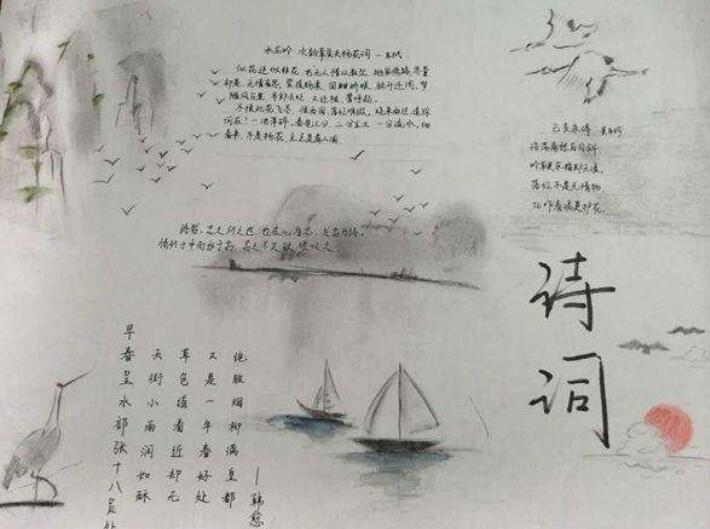 水龙吟 次韵章质夫杨花词 —苏轼
似花还似非花,也无人惜从教坠。抛家傍路,思量
却是,无情有思。萦损柔肠,困酣娇眼,欲开还闭。梦
随风万里,寻郎去处,又还被,莺呼起。
不恨此花飞尽,恨西园,落红难缀。晓来雨过,遗踪
何在?一池萍碎。春色三分,二分尘土,一分流水。细
看来,不是杨花,点点是离人泪。
己亥杂诗 龚自珍
浩荡离愁白日斜
吟鞭东指即天涯。
落红不是无情物
化作春泥更护花。
诗者,志之所之也,在心为志,发言为诗。
情动于中而形于言,言之不足,故
诗词
早春呈水部张十八员外
天街小雨润如酥
草色遥看近却无
又是一年春好处
绝胜烟柳满皇都
—韩愈